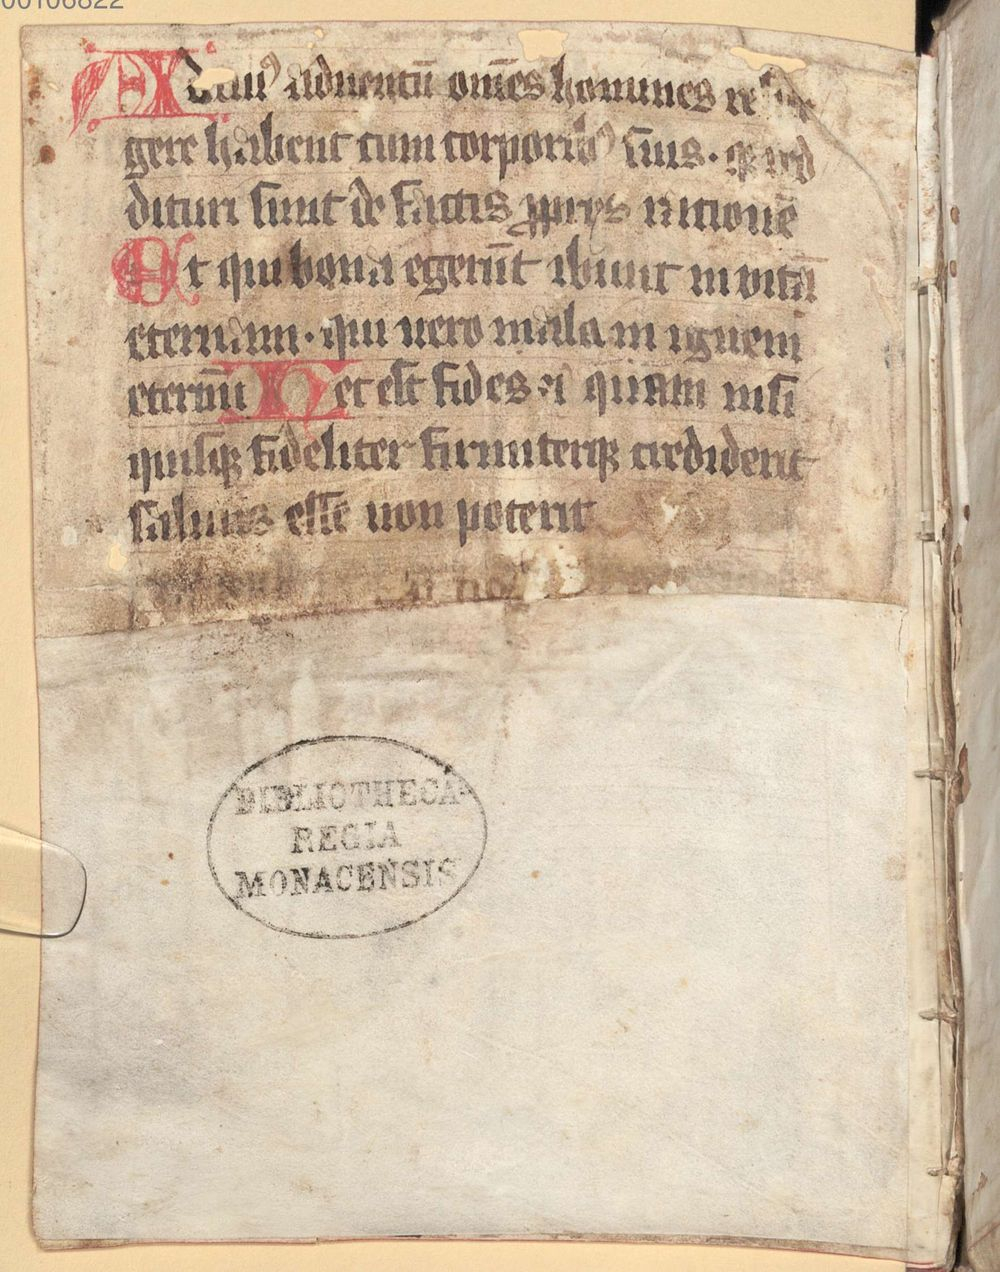 00106822
Ad cuiꝰ aduentū om̄es homines resur
gere habent cum corporibꝰ suis · ⁊ red
dituri sunt de factis ꝓprijs rationē
Et qui bona egerūt ibunt in vitā
eternam · qui vero mala in ignem
eternū Hec est fides quam nisi
quisqꝫ fideliter firmiterqꝫ crediderit
saluus esse non poterit
BIBLIOTHECA
REGIA
MONACENSIS